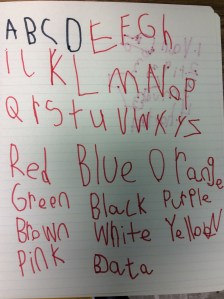 A B C D E E G h
I L K L M N o p
Q r S t u V W X Y S
Red Blue Orange
Green Black Purple
Brown White Yellow
Pink Data